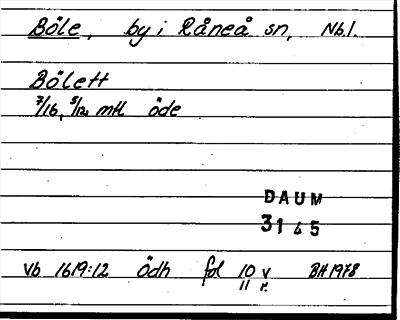 Böle, by i Råneå sn, Nb.l.
Bölett
7/16, 5/12 mtl öde
DAUM
3145
Vb 1619:12 Ödh fol 10 v BH 1978
11 r.